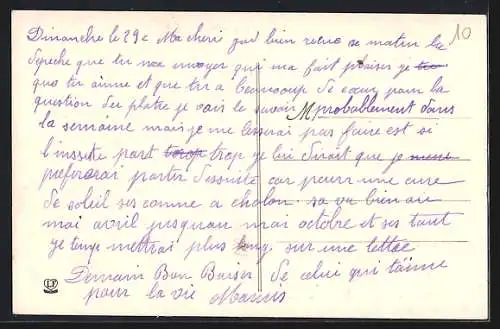 10
Dimanche le 29 Ma cheri jai bien recue se matin la
depeche que tu ma envoyer qui ma fait plaiser je
que tu aime et que tu a beaucoup de cœur pour la
question du platre je vais le savoir probablement dans
la semaine mais je me lesserai pas faire est si
l'inssiste part trop trop je lui dirait que je
prefererai partir dessuite car pour une cure
de soleil ses comme a chalon sa va bien au
mai avril jusquau mai octobre et ses tant
je temps mettrai plus long sur une lettre
Demain Bon Baiser de celui qui t'aime
pour la vie Marius